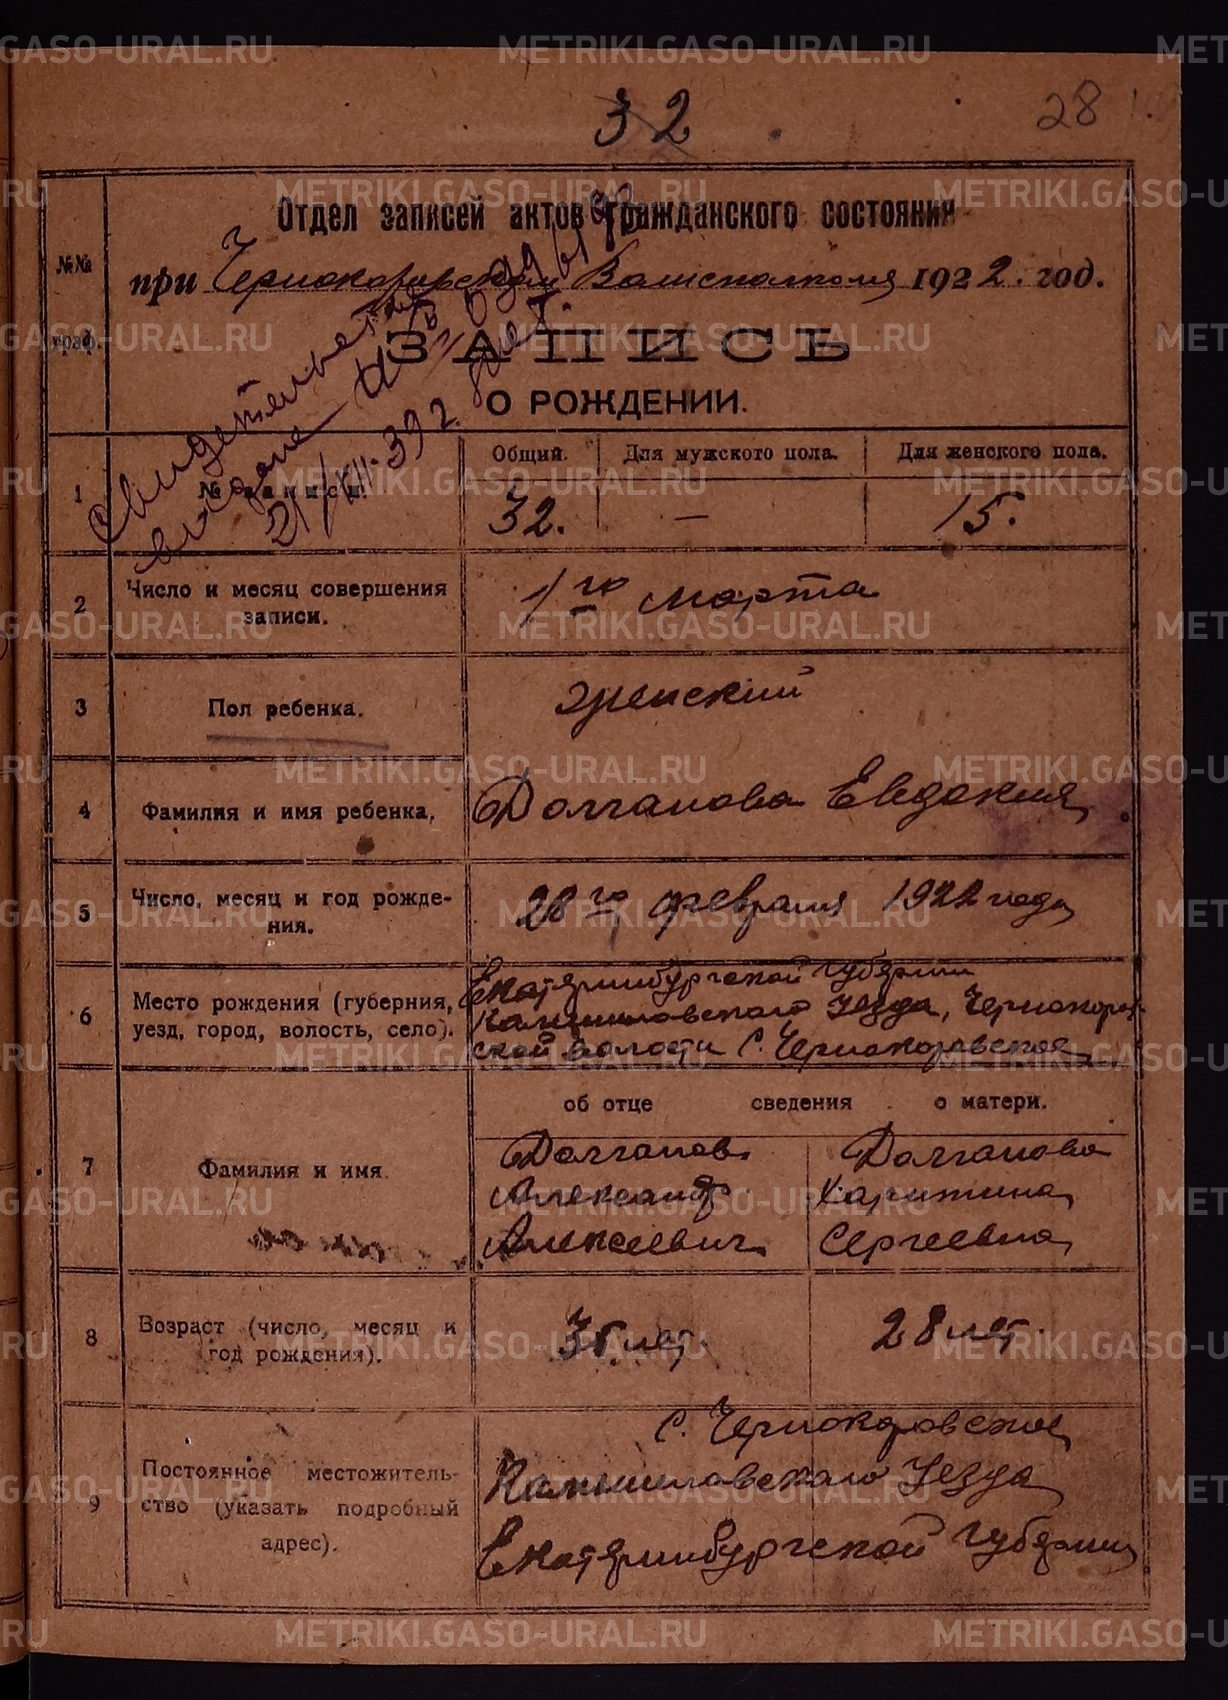 32
28
Отдел записей актов гражданского состояния
№№ граф.
при Чернокоровском Волисполкоме 1922. год.
ЗАПИСЬ
О РОЖДЕНИИ.
Свидетельство
выдано
21/XII-39 г.
1
№ записи.
Общий.
Для мужского пола.
Для женского пола.
32.
—
15.
2
Число и месяц совершения
записи.
1го марта
3
Пол ребенка.
женский
4
Фамилия и имя ребенка.
Долганова Евдокия
5
Число, месяц и год рожде-
ния.
28го февраля 1922 года
6
Место рождения (губерния,
уезд, город, волость, село).
Екатеринбургской губернии
Камышловского Уезда, Чернокоров-
ской волости С. Чернокоровское
об отце сведения о матери.
7
Фамилия и имя
Долганов
Александр
Алексеевич
Долганова
Харитина
Сергеевна
8
Возраст (число, месяц и
год рождения).
35 лет.
28 лет.
9
Постоянное местожитель-
ство (указать подробный
адрес).
С. Чернокоровское
Камышловского Уезда
Екатеринбургской губернии
METRIKI.GASO-URAL.RU